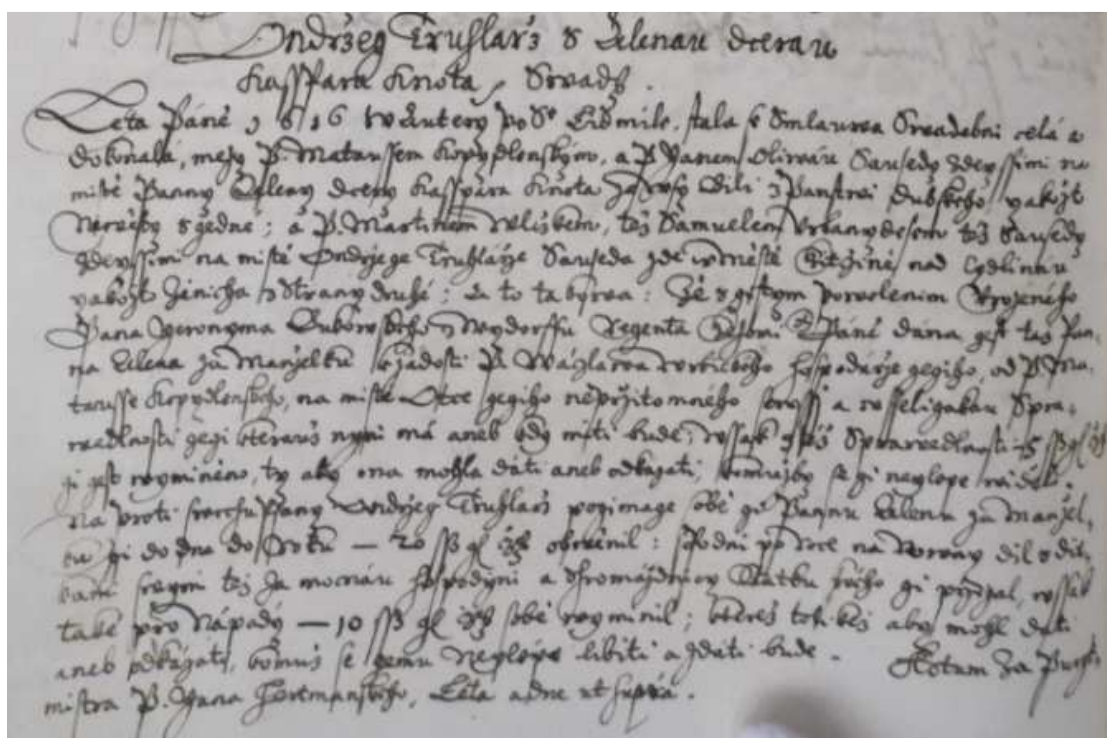 Ondržeg Truhlarž s Elenau dcerau
Kasspara Knota, Swadb.
Leta Paně 1616 w Autery po Ste Lidmile, stala se Smlauwa Swadebni cela a
dokonala, mezy P. Mataussem Kopydlenskym, a P. Yanem Oliwau Sausedy zdeyssimi na
mistě Panny Eleny dcery Kasspara Knota ze wsy z Panstwi Dubskeho yakožt
Newěsty z gedne; a P. Martinem Wliskem, tež Samuelem tež Sausedy
zdeyssimi na mistě Ondržege Truhlarže Sauseda zde w městě Gitžině nad Cydlinau
yakožt Ženicha z Strany druhe; a to takowa: Že s gistym powolenim Urozeneho
Pana Yeronyma z Neydorffu Regenta dana gest taž Pan-
na Elena za Manželku k žadosti P. Waczlawa hospodarže gegiho, od P. Ma-
tausse Kopydlenskeho, na mistě Otce gegiho nepržitomneho se wssi a wsseligakau Spra-
wedlnosti gegi kterauž nyni ma aneb kdy miti bude; wssak z te Sprawedlnosti 5 ss gr
gi gest wyminěno, ty aby ona mohla dati aneb odkazati, komužby se gi neylepe widělo.
Na proti swrchu Psany Ondržeg Truhlarž pogimage sobě gi Pannu Elenu za manžel-
ku gi do dne do Roku — 20 ss gr obwěnil: po Roce na Rowny dil s dit-
kami swymi tež za mocnau hospodyni a Shromaždnicy Statku sweho gi prigal, wssak
take pro Napady — 10 ss gr sobě wyminil; kterež tolikež aby mohl dati
aneb odkazati, komuž se gemu Neylepe libiti a zdati bude. Actum za Purgk-
mistra P. Yana Hortmanskeho, Leta a dne ut supra.